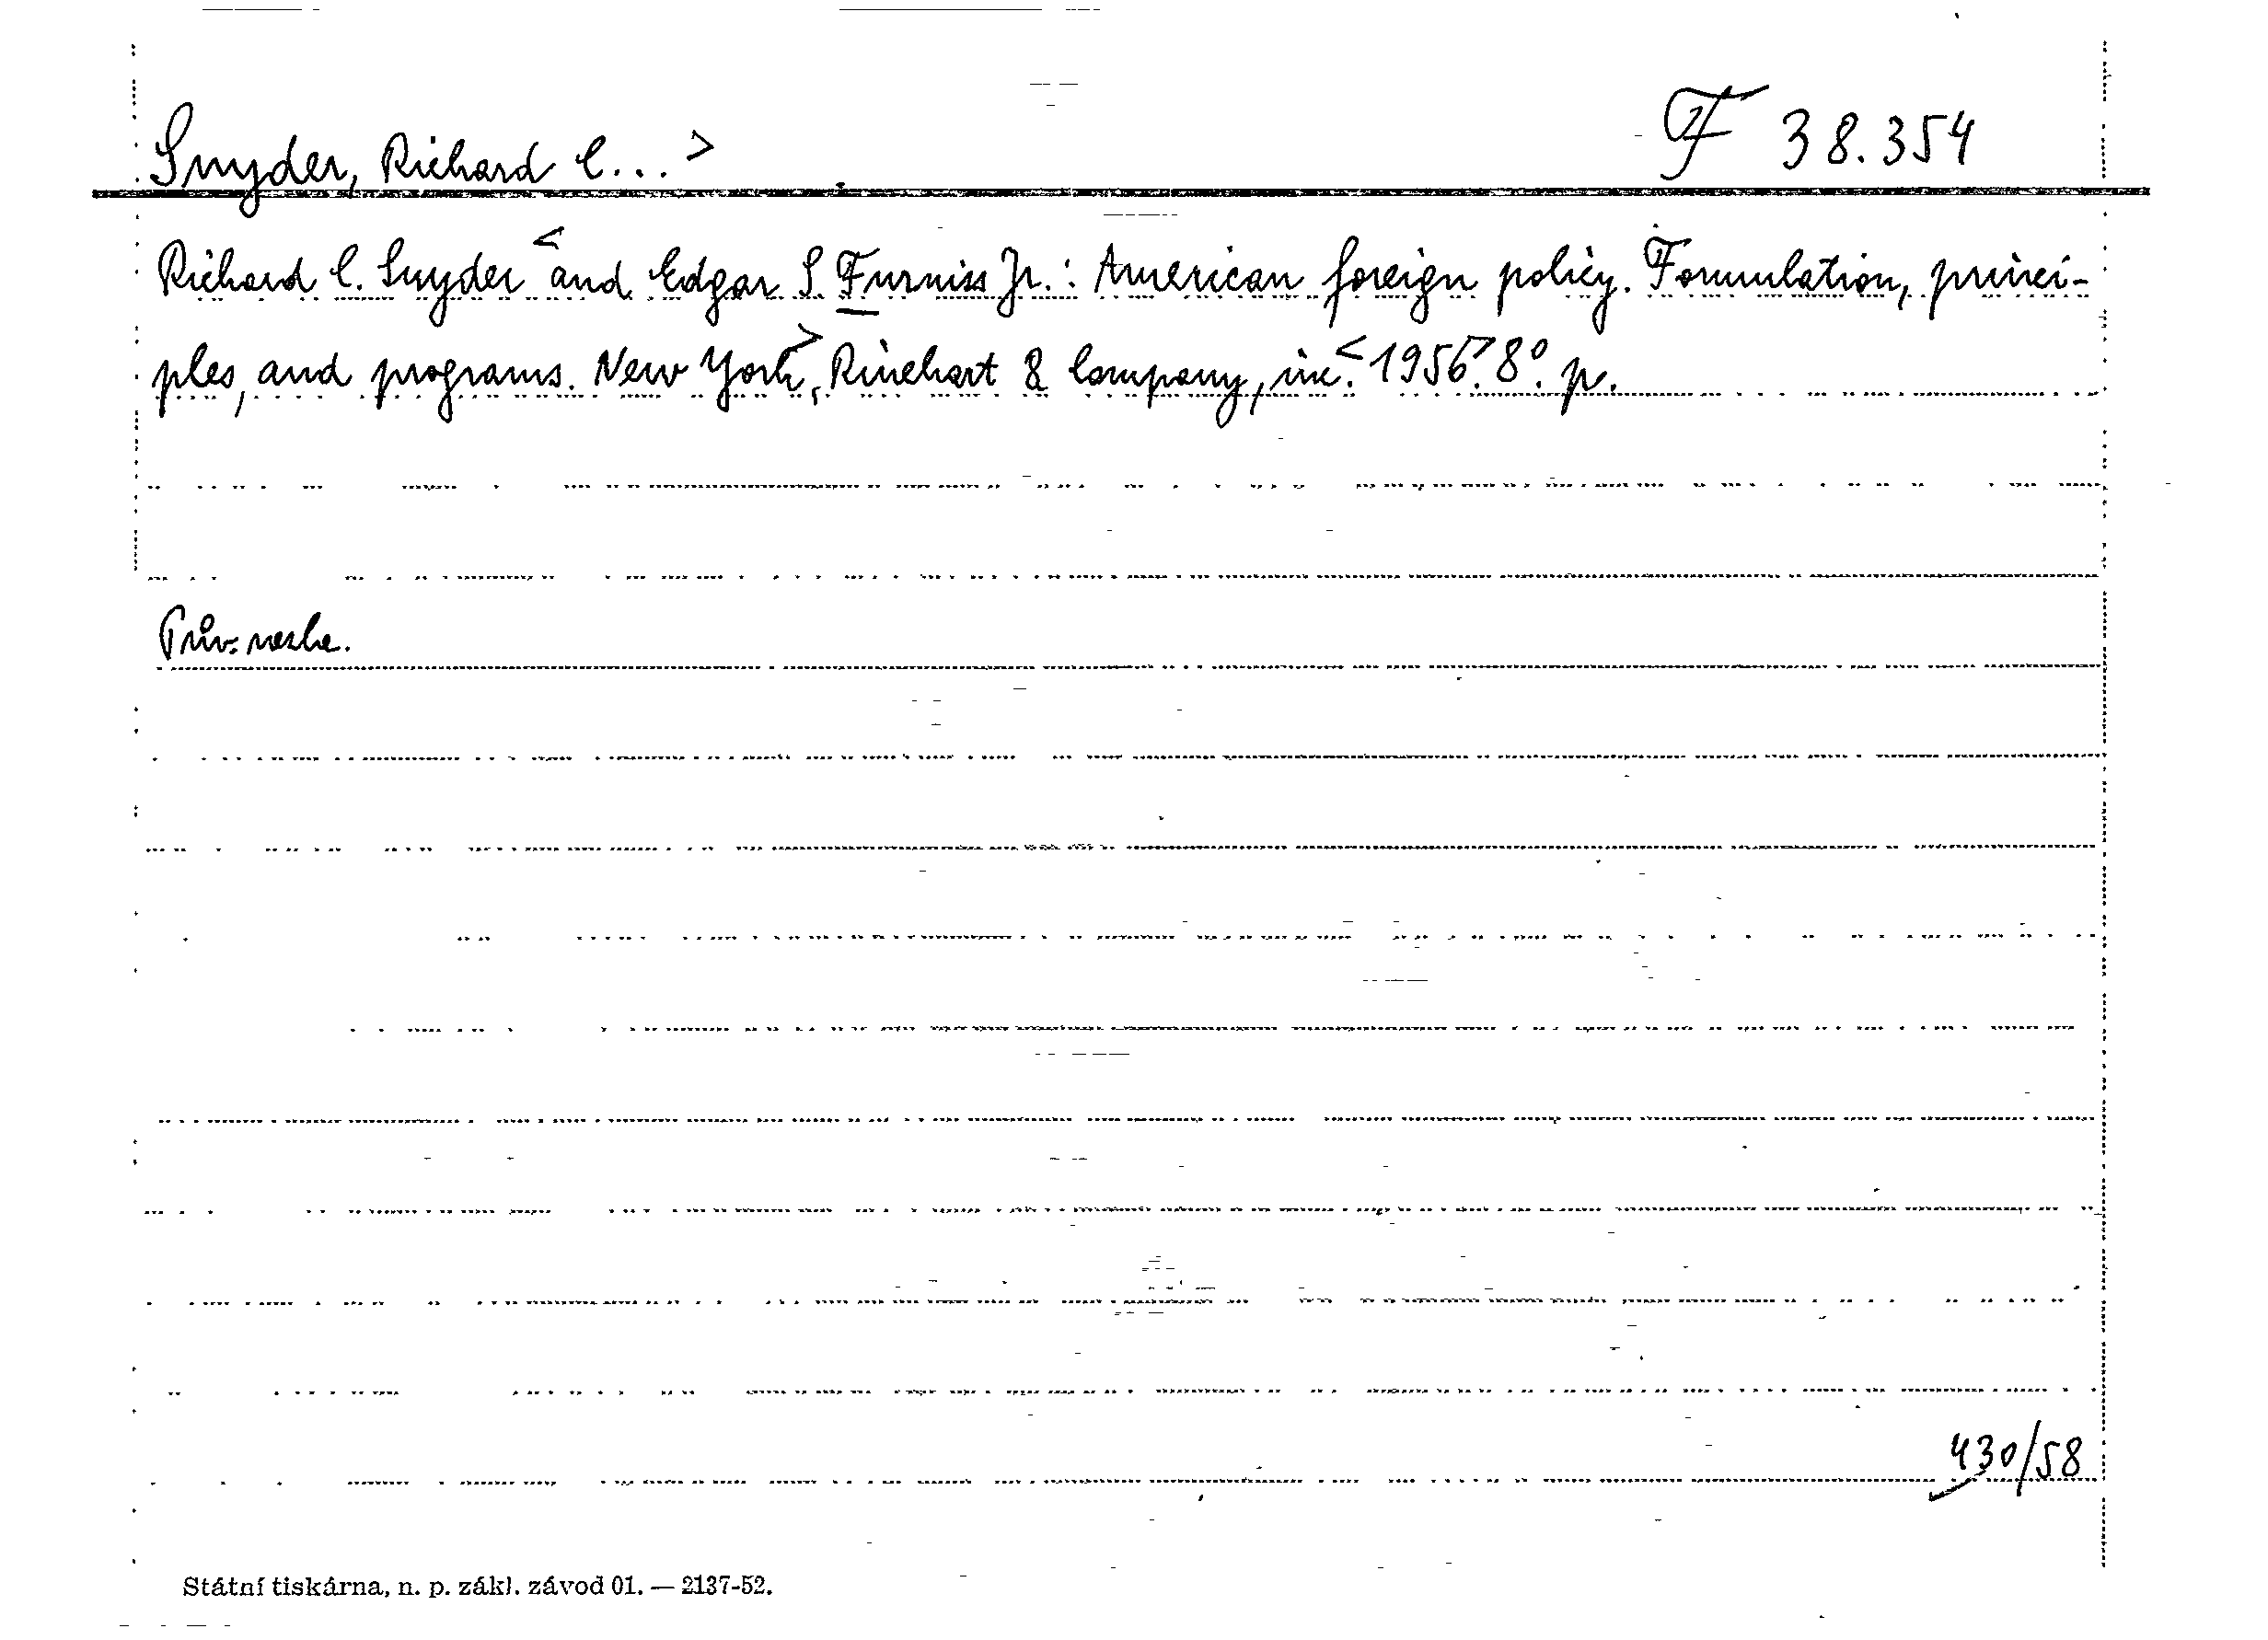 Snyder, Richard C... >
F 38.354
Richard C. Snyder < and Edgar S. Furniss Jr.: American foreign policy. Formulation, princi-
ples, and programs. New York >, Rinehart & Company, inc. < 1956 >. 8°. p.
Prův. neshe.
430/58
Státní tiskárna, n. p. zákl. závod 01. — 2137-52.